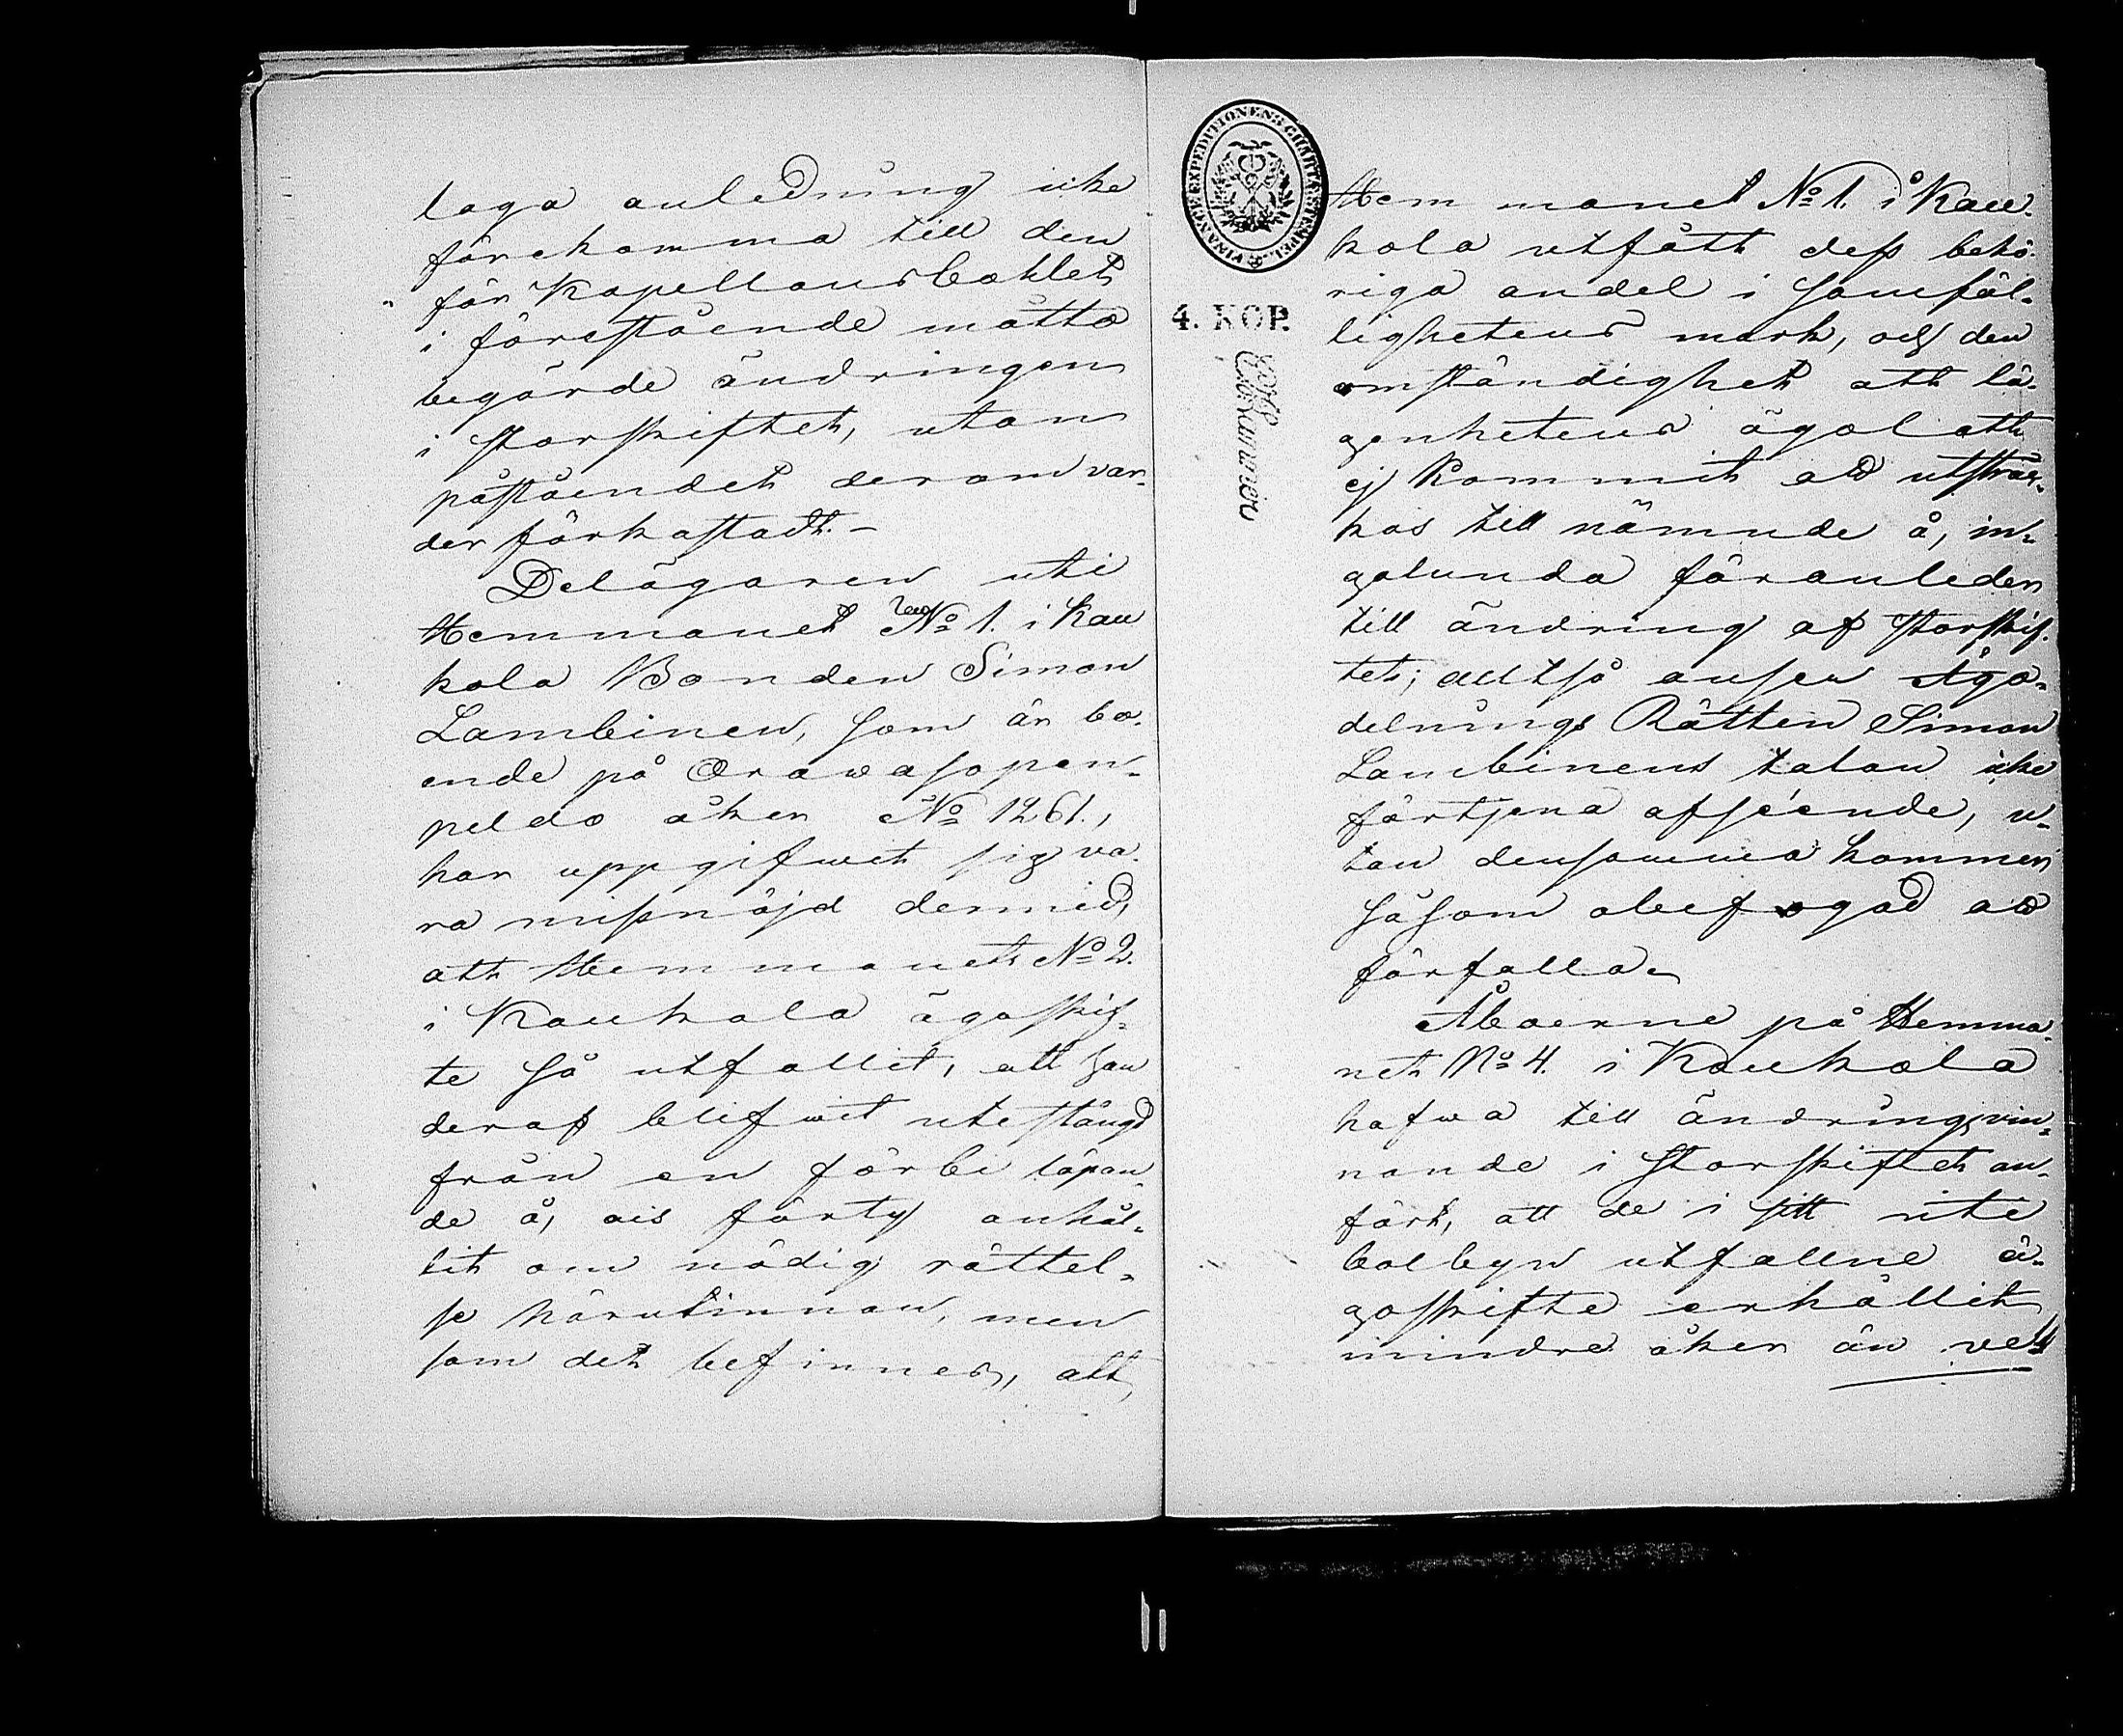 laga anledning icke
förekomma till den
för Kapellansbohlet
i förestående måtto
begärde ändringen
i storskiftet, utan
påståendet derom var-
der förkastadt. -
Delägaren uti
Hemmanet No 1. i Kau
kola Bonden Simon
Lambinen, som är bo-
ende på Orawasopen-
peldo åker No 1261.,
har uppgifwit sig va-
ra missnöjd dermed,
att Hemmanets No 2.
i Kaukola ägoskif-
te så utfallit, att han
deraf blifwit utestängd
från en förbi löpan-
de å, ock förty anhål-
lit om nödig rättel-
se härutinnan, men
som det befinnes, att
FINANCE EXPEDITIONENS CHARTÆ STEMPEL
4. KOP.
Hemmanet No 1. i Kau-
kola utfått dess behö-
riga andel i samfäl-
lighetens mark, och den
omständighet att lä-
genhetens ägolott
ej kommit att utsträc-
kas till nämnde å, in-
galunda föranleder
till ändring af storskif-
tet; alltså anser Ägo-
delnings Rätten Simon
Lambinens talan icke
förtjena afseende, u-
tan densamma kommer
såsom obefogad att
förfalla.
Åboerne på Hemma-
net No 4. i Kaukola
hafwa till ändrings vin-
nande i Storskiftet an-
fört, att de i sitt ute
bolbyn utfallne ä-
goskifte erhållit
mindre åker än veder